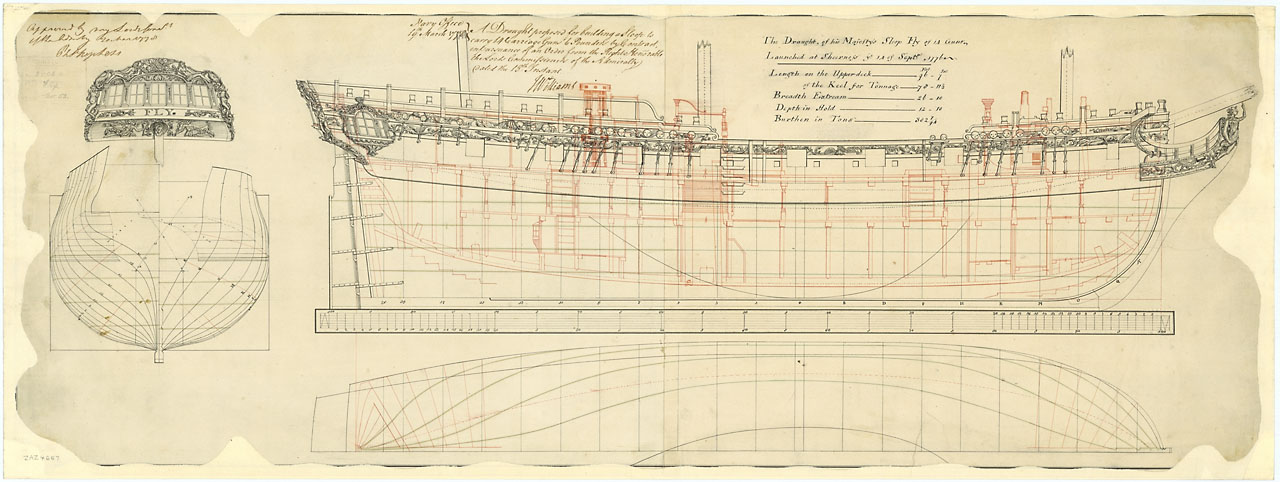 Approved by my Lords Com.rs
of the Admty
Ph: Stephens
FLY.
Navy Office
19 March 1776
A Draught proposed for building a Sloop to
carry 14 Carriage Guns 6 Pounders by Contract
in pursuance of an Order from the Right Honorable
the Lords Commissioners of the Admiralty
dated the 13th Instant
J Williams
The Draught, of his Majesty's Sloop Fly of 14 Guns,
Launched at Sheerness ye 14 of Septr 1776
Length on the Upper deck 96 - 7
of the Keel for Tonnage 78 -
Breadth Extream 26 - 10
Depth in Hold 12 - 10
Burthen in Tons 302
ZAZ4667